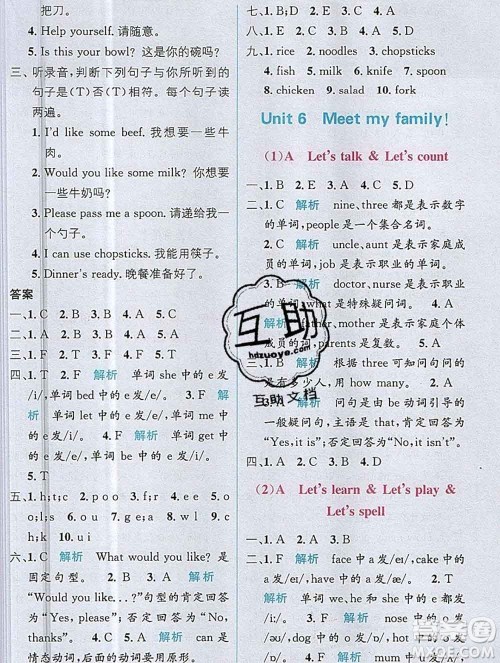 把刀。
4. Help yourself. 请随意。
5. Is this your bowl? 这是你的碗吗?
三、听录音,判断下列句子与你所听到的
句子是(T)否(F)相符。每个句子读
两遍。
1. I'd like some beef. 我想要一些牛
肉。
2. Would you like some milk? 你想要
一些牛奶吗?
3. Please pass me a spoon. 请递给我一
个勺子。
4. I can use chopsticks. 我能用筷子。
5. Dinner's ready. 晚餐准备好了。
答案
一、1. C 2. B 3. B 4. A 5. C
二、1. C 2. B 3. A 4. A 5. A
三、1. T 2. F 3. F 4. T 5. T
四、1. T 2. F 解析 单词 she 中的 e 发
/iː/, 单词 bed 中的 e 发/e/。 3. F
解析 单词 let 中的 e 发/e/, 单词 me 中
的 e 发/iː/。 4. F 解析 单词 get 中的
e 发/e/, 单词 he 中的 e 发/iː/。
5. T
五、1. h;t;c 2. p o o 3. f r 4. e e
5. k;f 6. i c 7. o o 8. s h 9. w l
10. c k 11. o o 12. u i
六、1. C 解析 What would you like? 是
固定句型。 2. A 3. B 4. A 解析
"Would you like...?"的肯定回答为
"Yes, please"; 否定回答为"No,
thanks"。 5. A 解析 can 是
情态动词,后面的动词要用原形。
七、1. C 2. A 3. D 4. B
八、1. E 2. A 3. D 4. B 5. C
九、1. rice 2. noodles 3. chopsticks
4. fish 5. milk 6. knife 7. spoon
8. chicken 9. salad 10. fork
Unit 6 Meet my family!
(1)A Let's talk & Let's count
一、1. B 2. E 3. D 4. A 5. C
二、1. C 解析 nine、three 都是表示数字
的单词, people 是一个集合名词。
2. C 解析 uncle、aunt 是表示家庭成
员的单词, doctor 是表示职业的单词。
3. 解析 what 是特殊疑问词。
解析 father、mother 是表示家庭
成员的单词, parents 是复数。
三、1. B 解析 根据 three 可知问句问的
是有多少个人。 2. A 解析 问句是 be 动词引导的
一般疑问句, 主语是 that, 肯定回答为
"Yes, it is"; 否定回答为"No, it isn't"。
四、1. C 2. A 3. B 4. D
(2)A Let's learn & Let's play &
Let's spell
一、1. F 解析 face 中的 a 发/eɪ/, cake 中
的 a 发/eɪ/, have 中的 a 发/æ/。 2. T
解析 单词 we、he 与 me 中的 e 都发
/iː/。 3. F 解析 nose 中的 o 发
互助
hdzuoye.com
互助文档